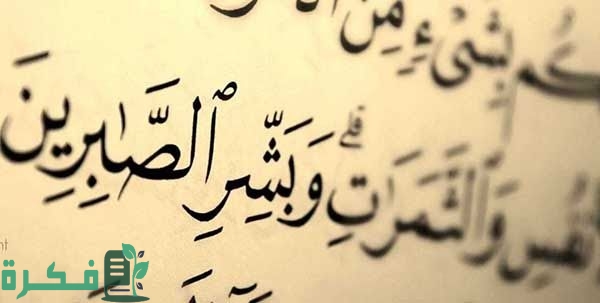 كُم بِشَىْءٍ مِّنَ
وَٱلثَّمَرَٰتِ ۗ وَبَشِّرِ ٱلصَّٰبِرِينَ
فكرة